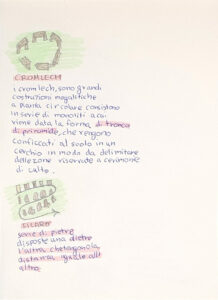 CROMLECH
i cromlech, sono grandi
costruzioni megalitiche
a pianta circolare consistono
in serie di monoliti a cui
viene data la forma di tronco
di priramide, che vengono
conficcati al suolo in un
cerchio in modo da delimitare
delle zone riservate a cerimonie
di culto.
serie di pietre
disposte una dietro
l'altra, che tagonola
distanza uguale all'
altra.